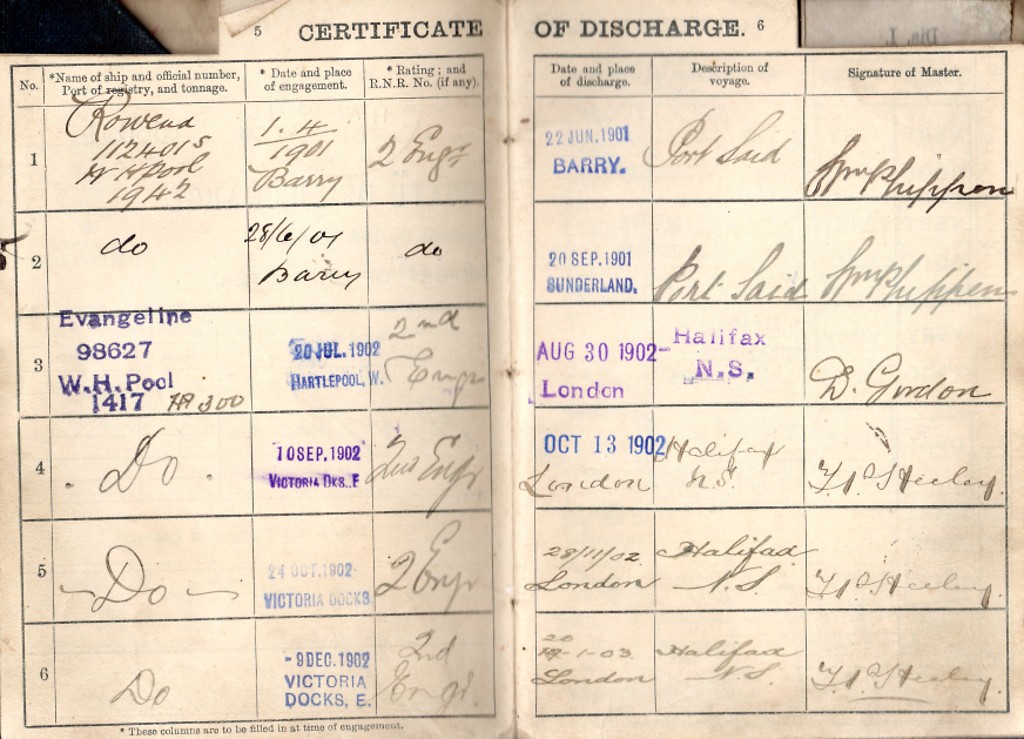 5 CERTIFICATE OF DISCHARGE. 6
No.
*Name of ship and official number, Port of registry, and tonnage.
* Date and place of engagement.
* Rating; and R.N.R. No. (if any).
Date and place of discharge.
Description of voyage.
Signature of Master.
1
Rowena
112401
W Hpool
1942
1.4
1901
Barry
2 Engr
22 JUN.1901
BARRY.
Port Said
Wm Phippen
2
do
28/6/01
Barry
do
20 SEP.1901
SUNDERLAND.
Port Said
Wm Phippen
3
Evangeline
98627
W.H.Pool
1417 HP 300
20 JUL.1902
HARTLEPOOL, W.
2nd
Engr
AUG 30 1902-
London
Halifax
N.S.
D. Gordon
4
Do
10 SEP.1902
VICTORIA DKS..E
2nd Engr
OCT 13 1902
London
Halifax
N.S.
Heeley
5
Do
24 OCT.1902
VICTORIA DOCKS
2 Engr
28/11/02
London
Halifax
N.S.
Heeley
6
Do
-9 DEC.1902
VICTORIA
DOCKS, E.
2nd
Engr.
20
-1-03.
London
Halifax
N.S.
Heeley
* These columns are to be filled in at time of engagement.